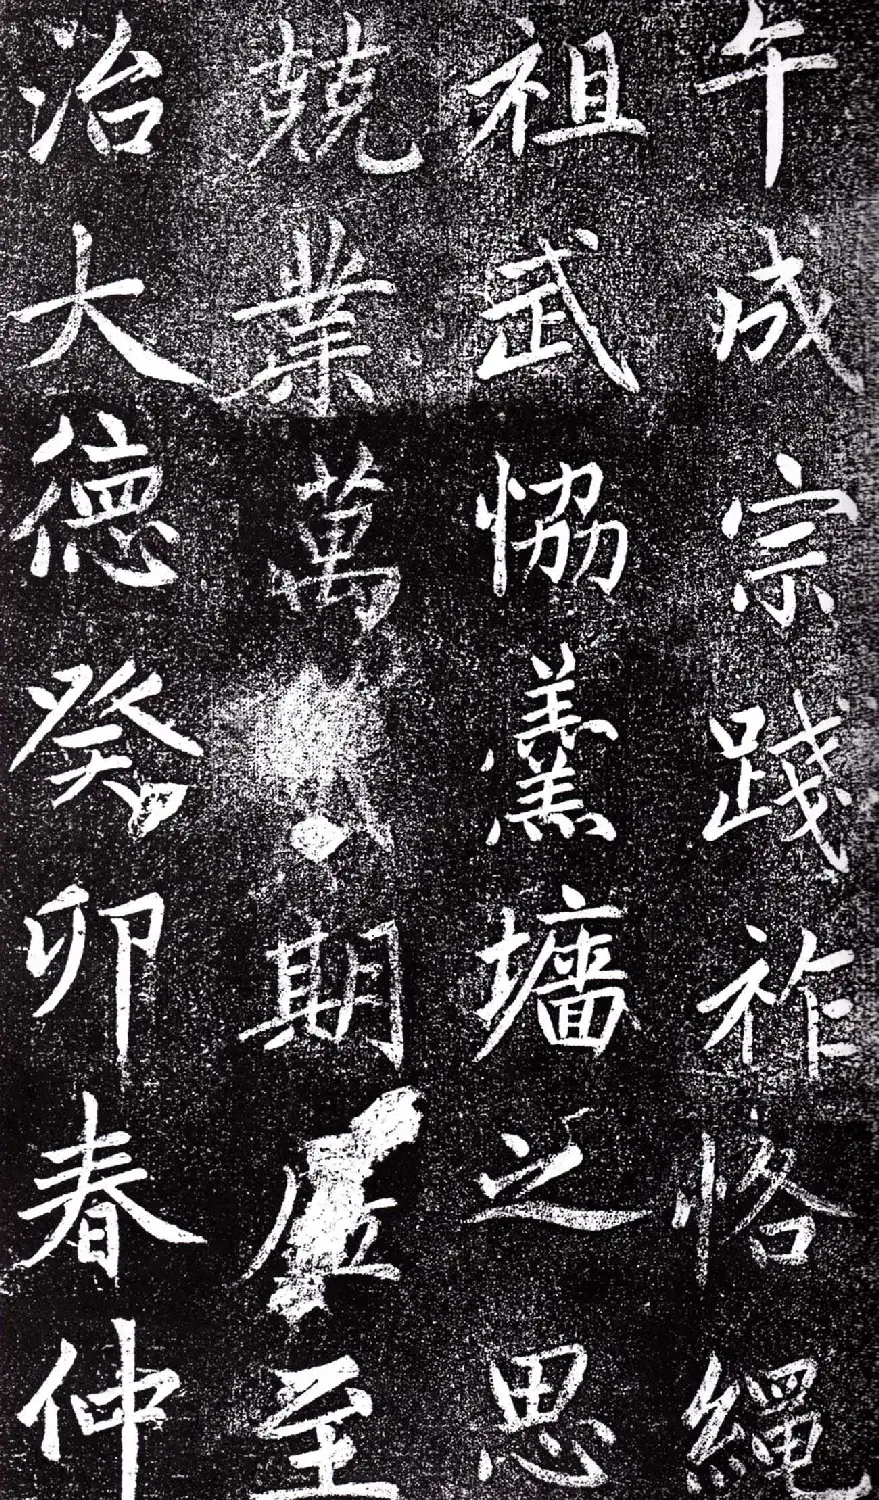 午成宗踐祚恪繩
祖武恊羹墻之思
兢業萬期底至
治大德癸卯春仲